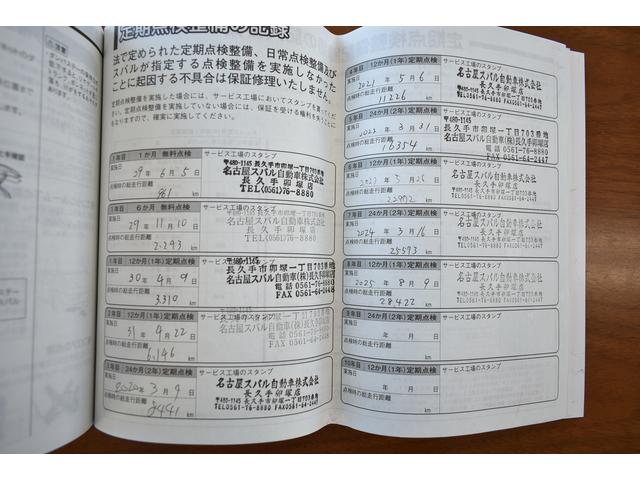 定期点検整備の記録
法で定められた定期点検整備、日常点検整備及び
スバルが指定する点検整備を実施しなかった
ことに起因する不具合は保証修理いたしません。
定期点検整備を実施した場合には、サービス工場においてスタンプを
定期点検整備を実施していない場合には、保証を受ける権利を失うことに
なりますので、確実に実施してください。
1年目 1か月 無料点検 サービス工場のスタンプ
実施日 29年6月5日
点検時の総走行距離
861 km
〒480-1145 長久手市卯塚一丁目703番地
名古屋スバル自動車株式会社
長久手卯塚店
TEL(0561)76-8880
1年目 6か月 無料点検 サービス工場のスタンプ
実施日 29年11月10日
点検時の総走行距離
2,293 km
〒480-1145 長久手市卯塚一丁目703番地
名古屋スバル自動車株式会社
長久手卯塚店
TEL(0561)76-8880
1年目 12か月(1年)定期点検 サービス工場のスタンプ
実施日 30年4月9日
点検時の総走行距離
3,310 km
〒480-1145
長久手市卯塚一丁目703番地
名古屋スバル自動車(株)長久手卯塚店
電話 0561-76-8880
FAX 0561-64-2448
2年目 12か月(1年)定期点検 サービス工場のスタンプ
実施日 31年4月22日
点検時の総走行距離
6,146 km
〒480-1145
長久手市卯塚一丁目703番地
名古屋スバル自動車(株)長久手卯塚店
電話 0561-76-8880
FAX 0561-64-2448
3年目 24か月(2年)定期点検 サービス工場のスタンプ
実施日 2020年3月9日
点検時の総走行距離
km
名古屋スバル自動車株式会社
長久手卯塚店
〒480-1145 長久手市卯塚一丁目703番地
TEL0561-76-8880 FAX0561-64-2447
4年目 12か月(1年)定期点検 サービス工場のスタンプ
実施日 2021年5月6日
点検時の総走行距離
11226 km
名古屋スバル自動車株式会社
長久手卯塚店
〒480-1145 長久手市卯塚一丁目703番地
TEL0561-76-8880 FAX0561-64-2447
5年目 24か月(2年)定期点検 サービス工場のスタンプ
実施日 2022年3月31日
点検時の総走行距離
16354 km
〒480-1145
長久手市卯塚一丁目703番地
名古屋スバル自動車(株)長久手卯塚店
電話 0561-76-8880
FAX 0561-64-2447
6年目 12か月(1年)定期点検 サービス工場のスタンプ
実施日 2023年3月25日
点検時の総走行距離
km
名古屋スバル自動車株式会社
長久手卯塚店
7年目 24か月(2年)定期点検 サービス工場のスタンプ
実施日 2024年3月16日
点検時の総走行距離
25593 km
長久手市卯塚一丁目703番地
名古屋スバル自動車(株)長久手卯塚店
電話 0561-76-8880
FAX 0561-64-2447
8年目 12か月(1年)定期点検 サービス工場のスタンプ
実施日 2025年8月9日
点検時の総走行距離
28422 km
長久手市卯塚一丁目703番地
名古屋スバル自動車(株)長久手卯塚店
電話 0561-76-8880
FAX 0561-64-2447
9年目 24か月(2年)定期点検 サービス工場のスタンプ
実施日 年 月 日
点検時の総走行距離
km
10年目 12か月(1年)定期点検 サービス工場のスタンプ
実施日 年 月 日
点検時の総走行距離
km